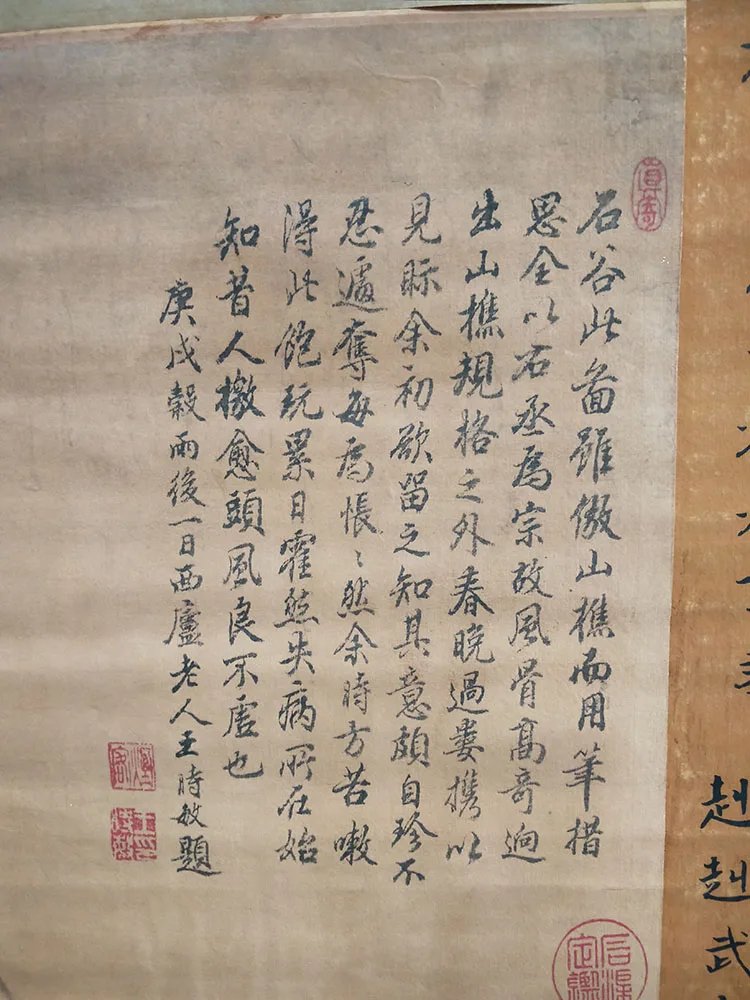 石谷此啚雖倣山樵而用筆措
思全以右丞爲宗故風骨高奇迥
出山樵規格之外春晚過婁攜以
見眎余初欲留之知其意頗自珍不
忍遽奪每爲悵〻然余時方苦嗽
得此飽玩累日霍然失病所在始
知昔人檄愈頭風良不虛也
庚戌穀雨後一日西廬老人王時敏題
赳赳武